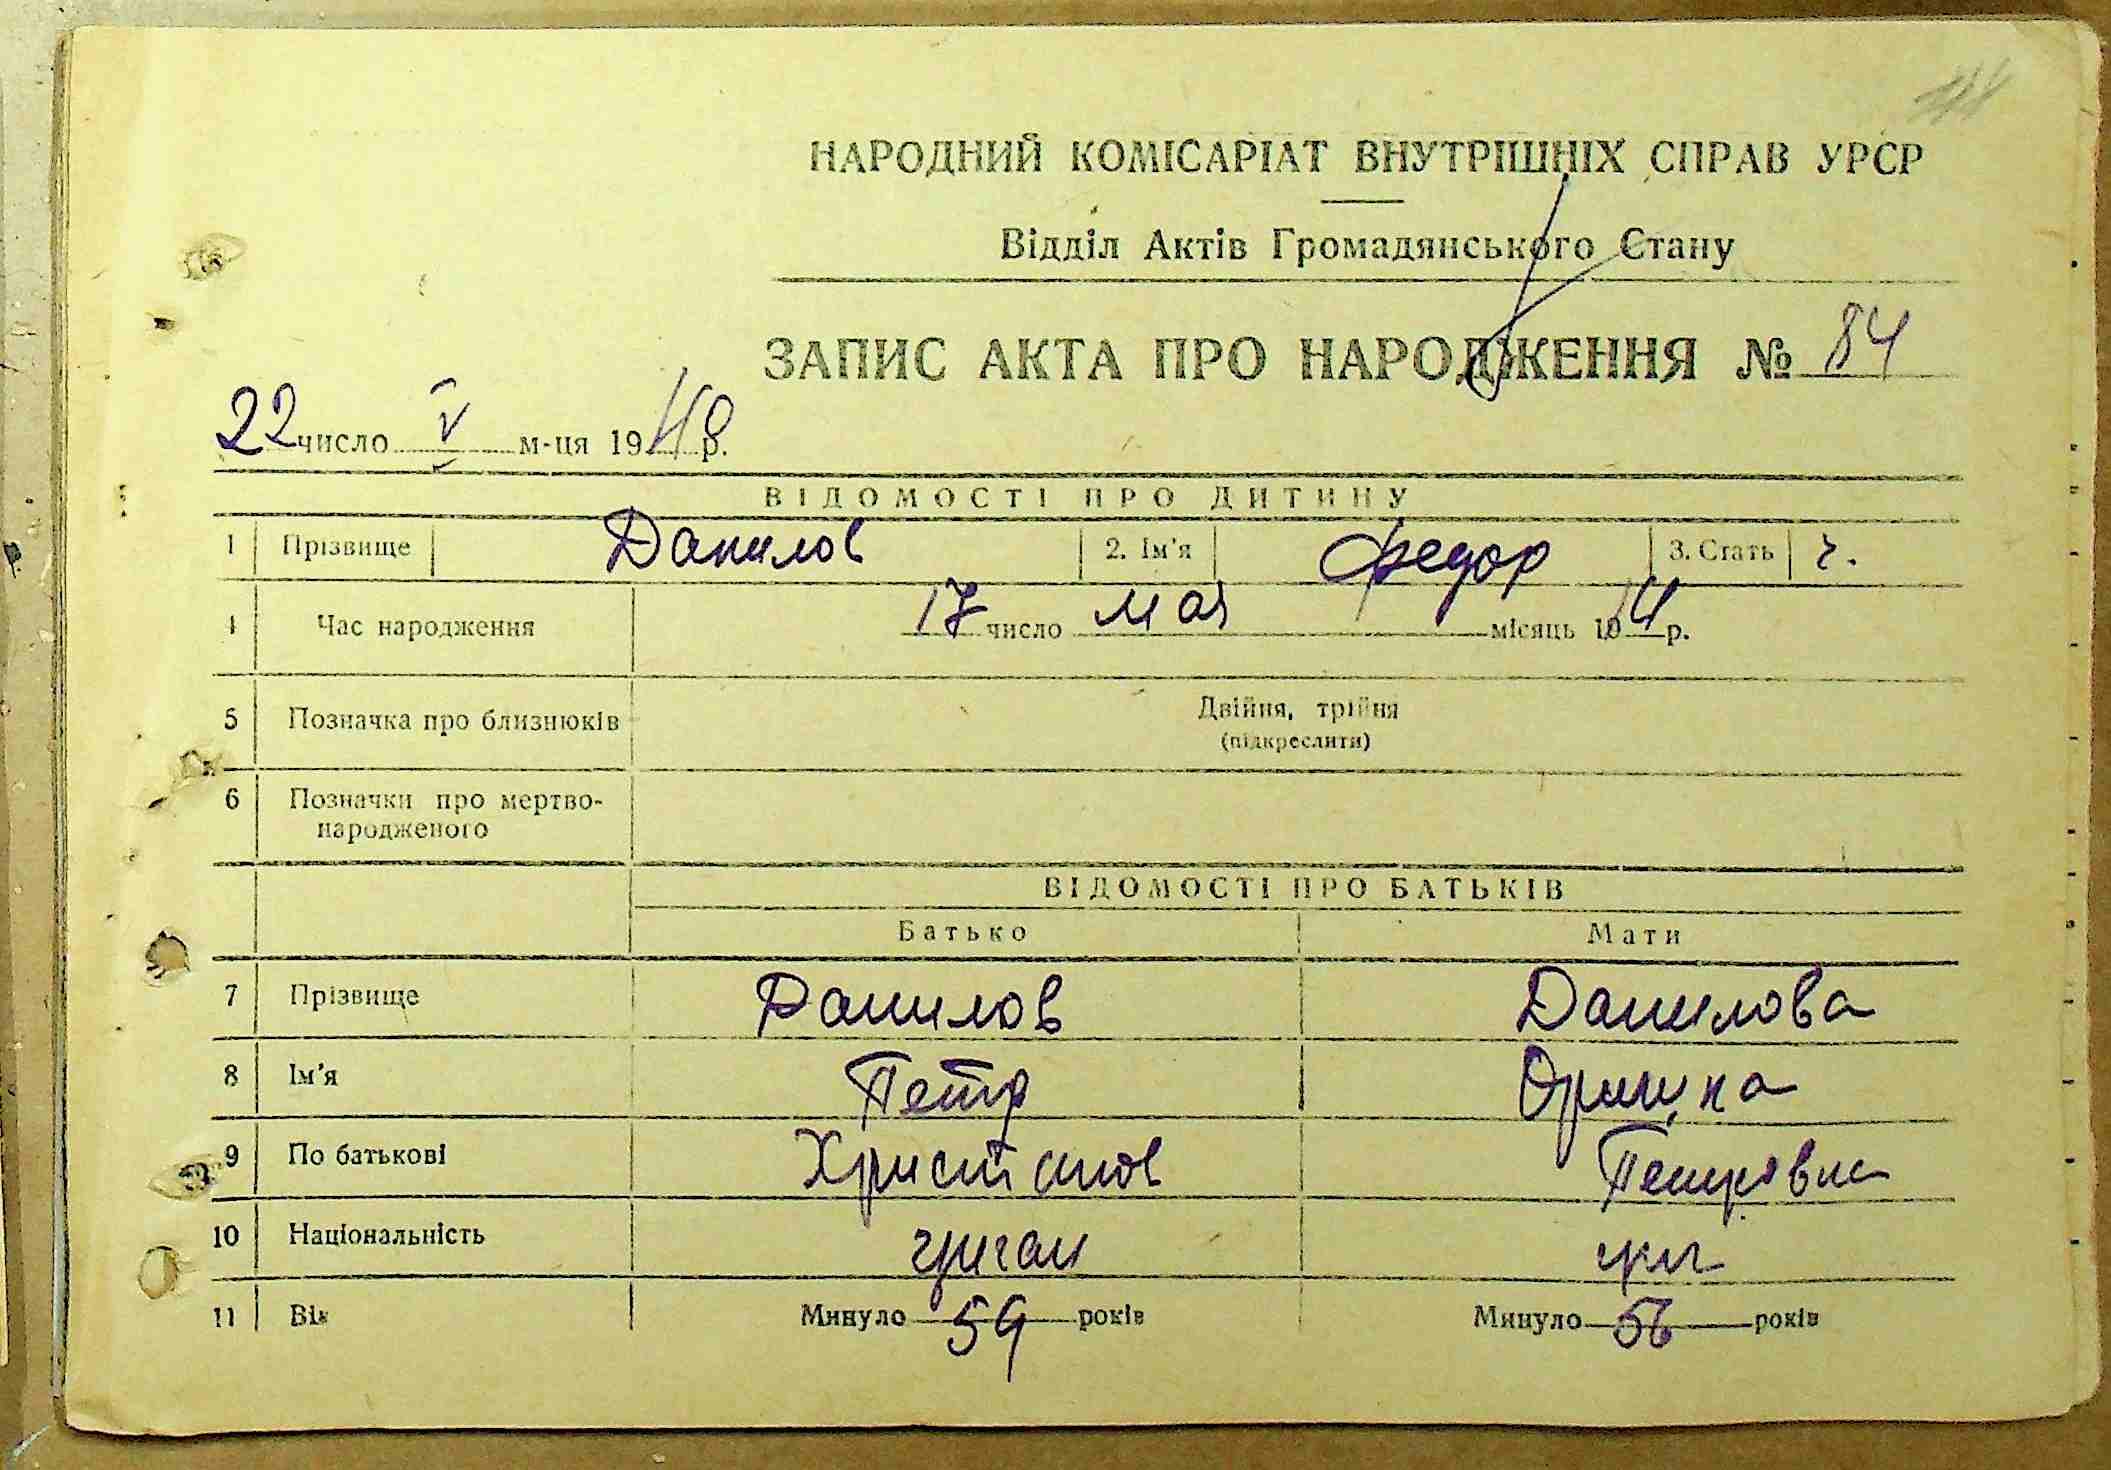 НАРОДНИЙ КОМІСАРІАТ ВНУТРІШНІХ СПРАВ УРСР
Відділ Актів Громадянського Стану
ЗАПИС АКТА ПРО НАРОДЖЕННЯ № 84
22 число V м-ця 1940 р.
ВІДОМОСТІ ПРО ДИТИНУ
1 Прізвище Данилов 2. Ім'я Федор 3. Стать ч.
4 Час народження 17 число мая місяць р.
5 Позначка про близнюків Двійня, трійня
(підкреслити)
6 Позначки про мертво-
народженого
ВІДОМОСТІ ПРО БАТЬКІВ
Батько Мати
7 Прізвище Данилов Данилова
8 Ім'я Петр
9 По батькові Петровна
10 Національність циган
11 Вік Минуло 59 років Минуло 56 років